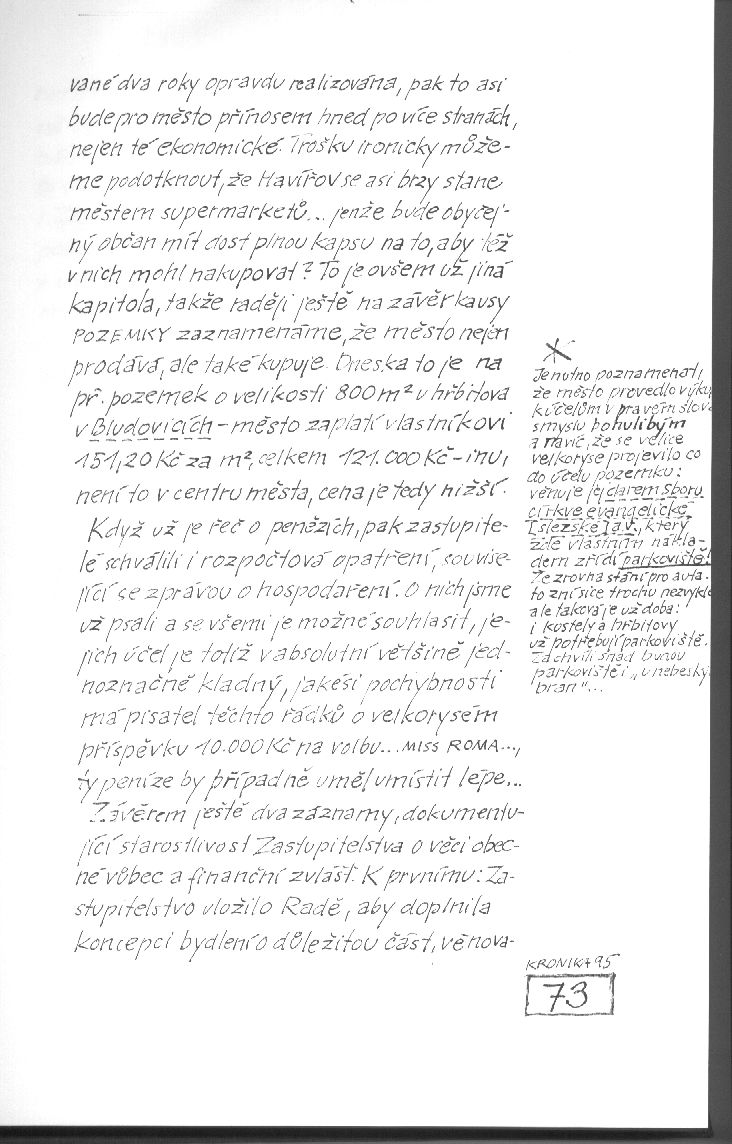 vané dva roky opravdu realizována, pak to asi
bude pro město přínosem hned po více stranách,
nejen té ekonomické. Trošku ironicky může-
me podotknout, že Havířov se asi brzy stane
městem supermarketů... jenže bude obyčej-
ný občan mít dost plnou kapsu na to, aby též
v nich mohl nakupovat? To je ovšem už jiná
kapitola, takže raději ještě na závěr kausy
POZEMKY zaznamenáme, že město nejen
prodává, ale také kupuje. Dneska to je na
př. pozemek o velikosti 800 m² u hřbitova
v Bludovicích - město zaplatí vlastníkovi
151,20 Kč za m², celkem 121.000 Kč - inu,
není to v centru města, cena je tedy nižší.
Když už je řeč o penězích, pak zastupite-
lé schválili i rozpočtová opatření, souvise-
jící se zprávou o hospodaření. O nich jsme
už psali a se všemi je možné souhlasit, je-
jich účel je totiž v absolutní většině jed-
noznačně kladný, jakési pochybnosti
má pisatel těchto řádků o velkorysém
příspěvku 10.000 Kč na volbu... MISS ROMA...,
ty peníze by případně uměl umístit lépe...
Závěrem ještě dva záznamy, dokumentu-
jící starostlivost Zastupitelstva o věci obec-
né vůbec a finanční zvlášť. K prvnímu: Za-
stupitelstvo uložilo Radě, aby doplnila
koncepci bydlení o důležitou část, věnova-
Je nutno poznamenati,
že město provedlo výku
k účelům v pravém slova
smyslu bohulibým
a navíc, že se velice
velkoryse projevilo co
do účelu pozemku:
věnuje jej darem sboru
církve evangelické
[slezské] a.v., který
zde vlastním nákla-
dem zřídí parkoviště!
Že zrovna stání pro auta.
to zní sice trochu nezvykle
ale taková je už doba:
i kostely a hřbitovy
už potřebují parkoviště.
Za chvíli snad budou
parkoviště i „u nebeský
bran"...
KRONIKA 95
73